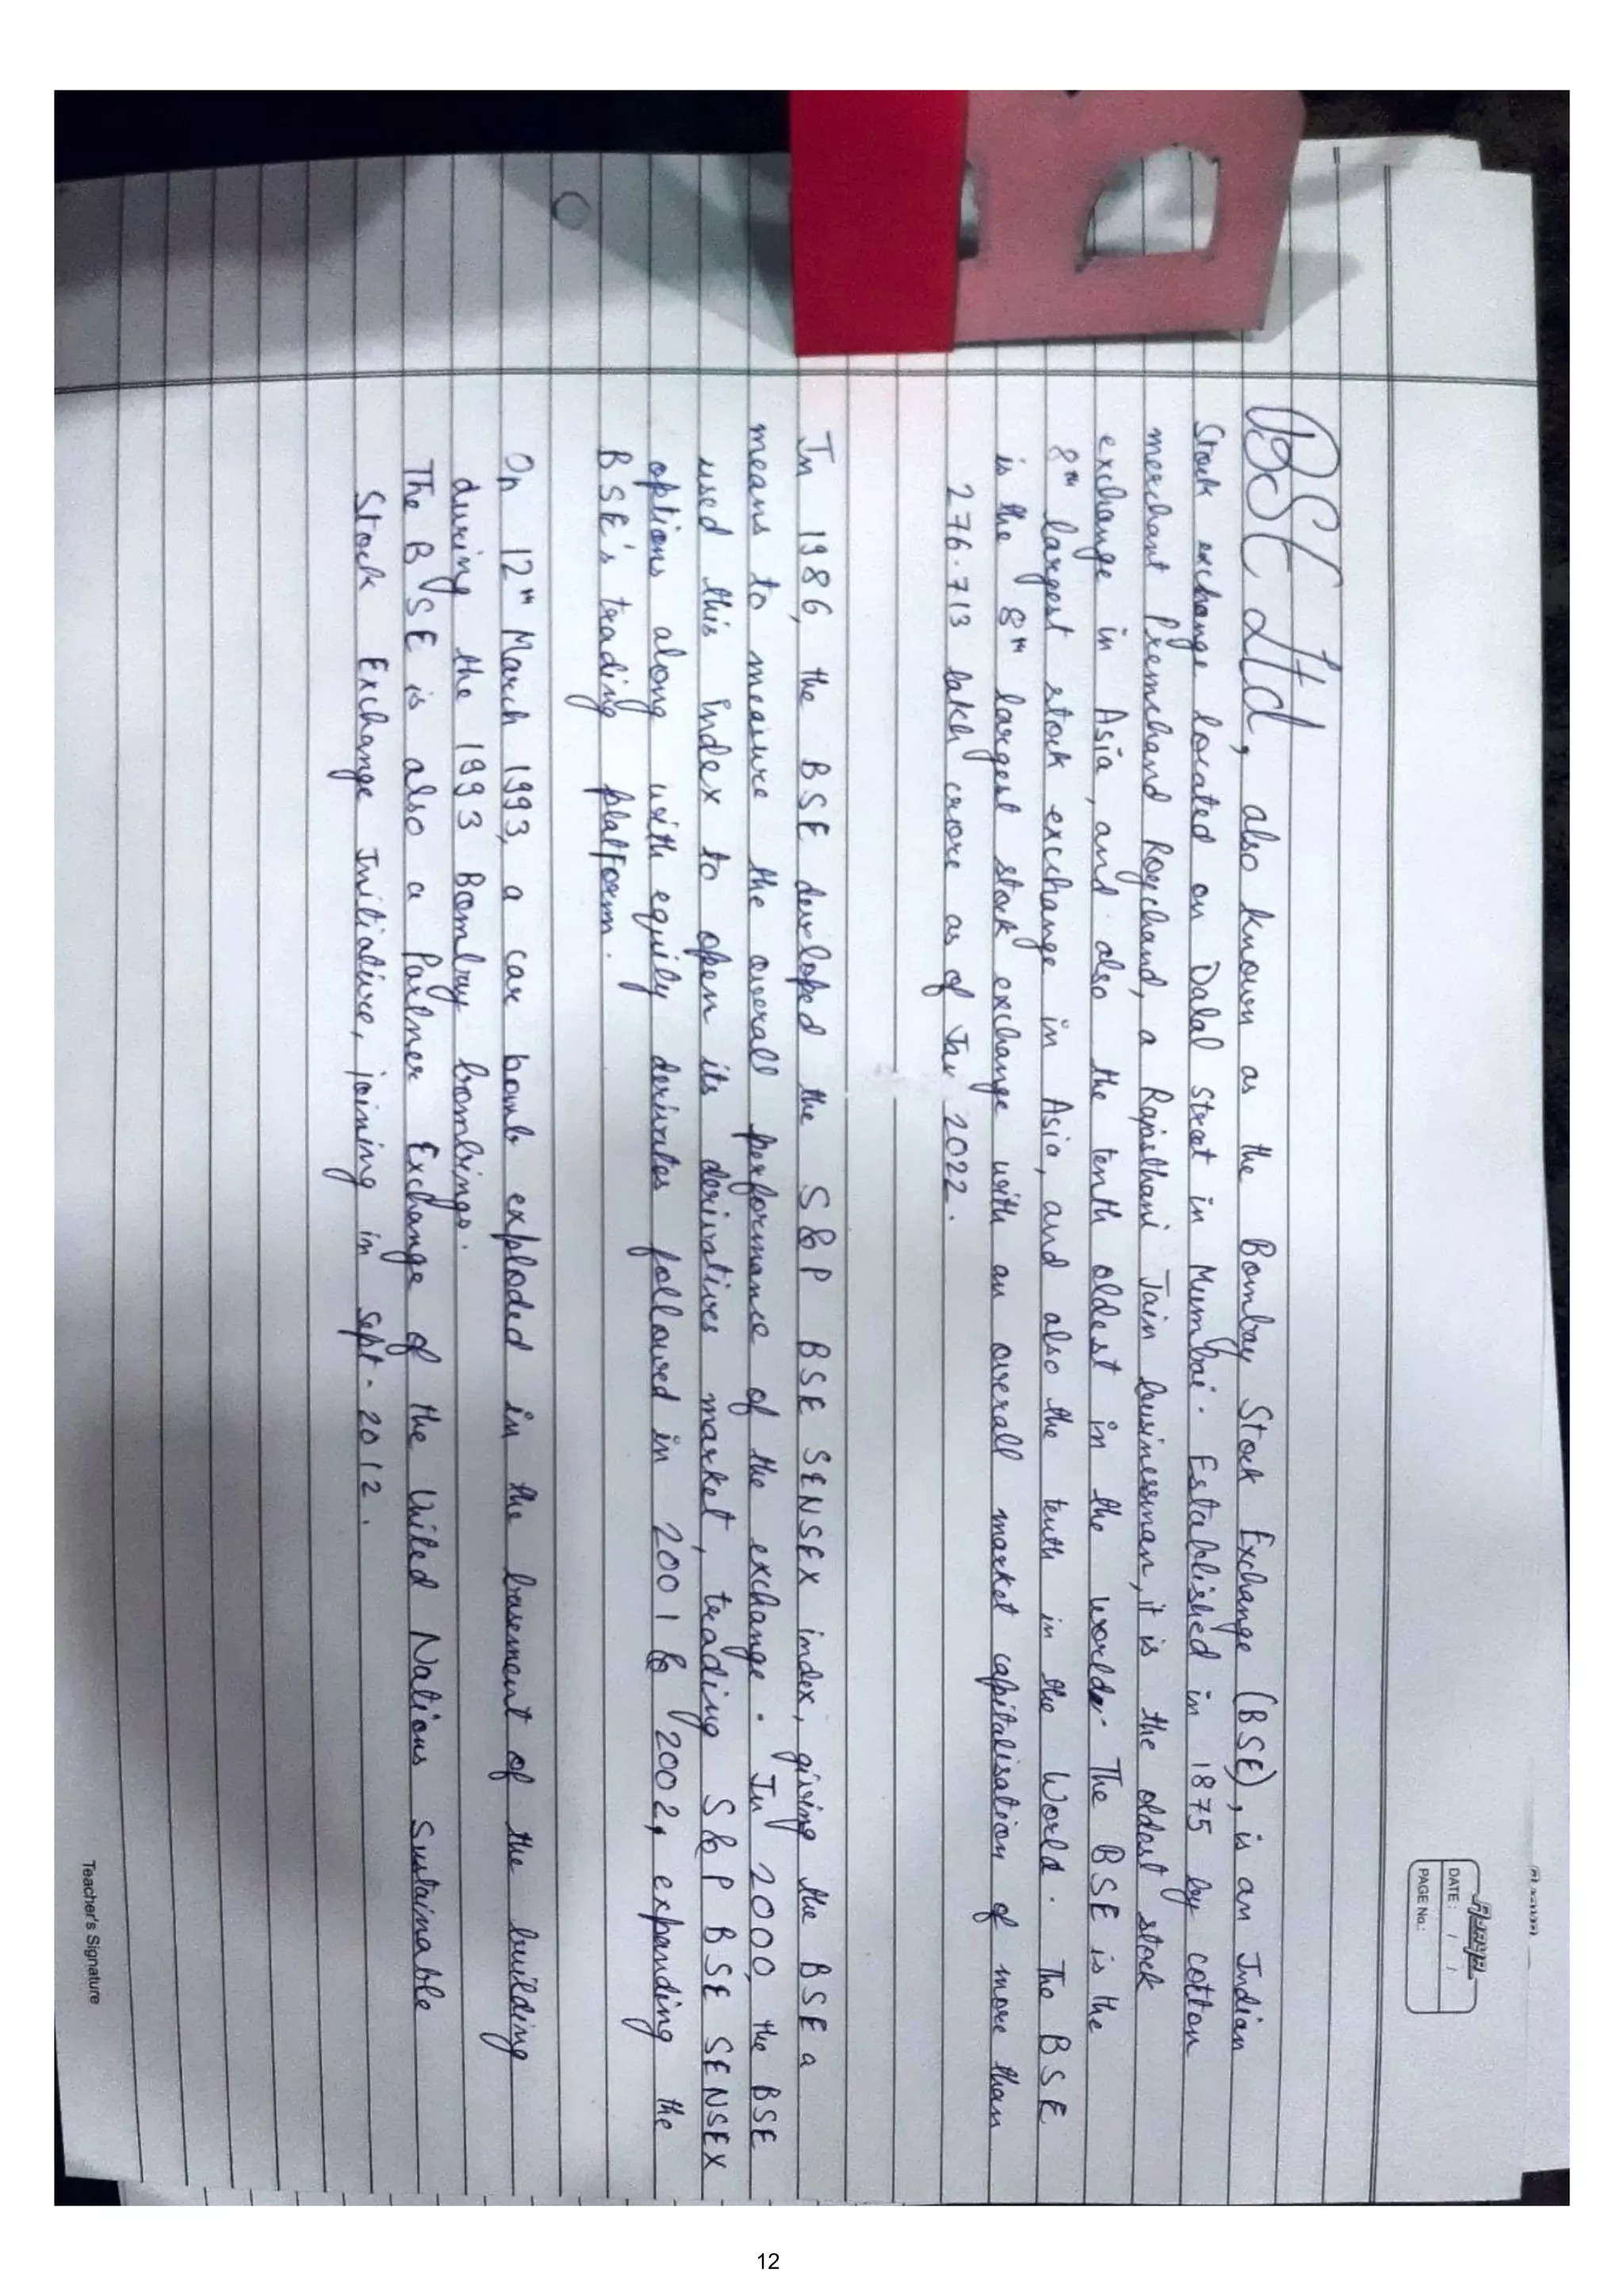 DATE: / /
PAGE No.:
BSE Ltd, also known as the Bombay Stock Exchange (BSE), is an Indian
Stock exchange located on Dalal Street in Mumbai. Established in 1875 by cotton
merchant Premchand Roychand, a Rajasthani Jain businessman, it is the oldest stock
exchange in Asia, and also the tenth oldest in the world. The BSE is the
8th largest stock exchange in Asia, and also the tenth in the World. The BSE
is the 8th largest stock exchange with an overall market capitalisation of more than
276.713 lakh crore as of Jan 2022.
In 1986, the BSE developed the S&P BSE SENSEX index, giving the BSE a
means to measure the overall performance of the exchange. In 2000, the BSE
used this index to open its derivatives market, trading S&P BSE SENSEX
options along with equity derivates followed in 2001 & 2002, expanding the
BSE's trading platform.
On 12th March 1993, a car bomb exploded in the basement of the building
during the 1993 Bombay bombings.
The BSE is also a Partner Exchange of the United Nations Sustainable
Stock Exchange Initiative, joining in Sept. 2012.
Teacher's Signature
12